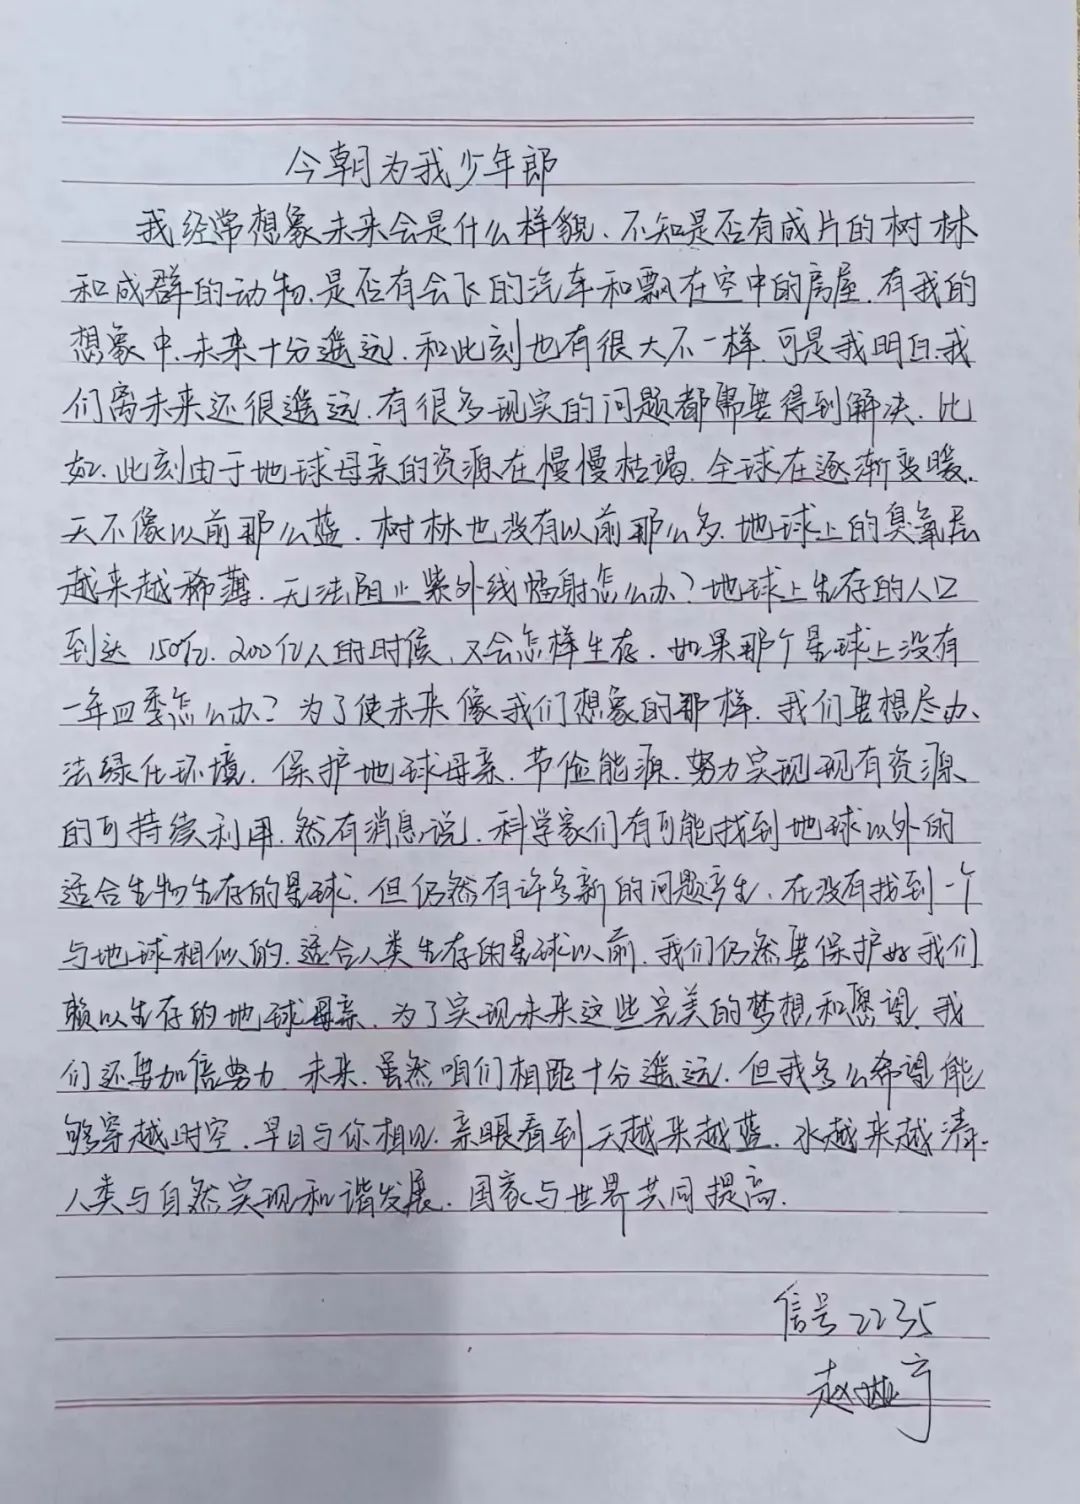 今朝为我少年郎
我经常想象未来会是什么样貌、不知是否有成片的树林
和成群的动物、是否有会飞的汽车和飘在空中的房屋.有我的
想象中.未来十分遥远.和此刻也有很大不一样.可是我明白.我
们离未来还很遥远.有很多现实的问题都需要得到解决.比
如.此刻由于地球母亲的资源在慢慢枯竭.全球在逐渐变暖.
天不像以前那么蓝.树林也没有以前那么多.地球上的臭氧层
越来越稀薄.无法阻止紫外线幅射怎么办?地球上生存的人口
到达150亿.200亿人的时候、又会怎样生存.如果那个星球上没有
一年四季怎么办?为了使未来像我们想象的那样.我们要想尽办
法绿化环境.保护地球母亲.节俭能源.努力实现现有资源
的可持续利用.然有消息说.科学家们有可能找到地球以外的
适合生物生存的星球.但仍然有许多新的问题产生、在没有找到一个
与地球相似的.适合人类生存的星球以前.我们仍然要保护好我们
赖以生存的地球母亲.为了实现未来这些完美的梦想和愿望.我
们还要加倍努力 未来.虽然咱们相距十分遥远.但我多么希望能
够穿越时空.早日与你相见.亲眼看到天越来越蓝.水越来越清.
人类与自然实现和谐发展.国家与世界共同提高.
信号2235
赵 宇